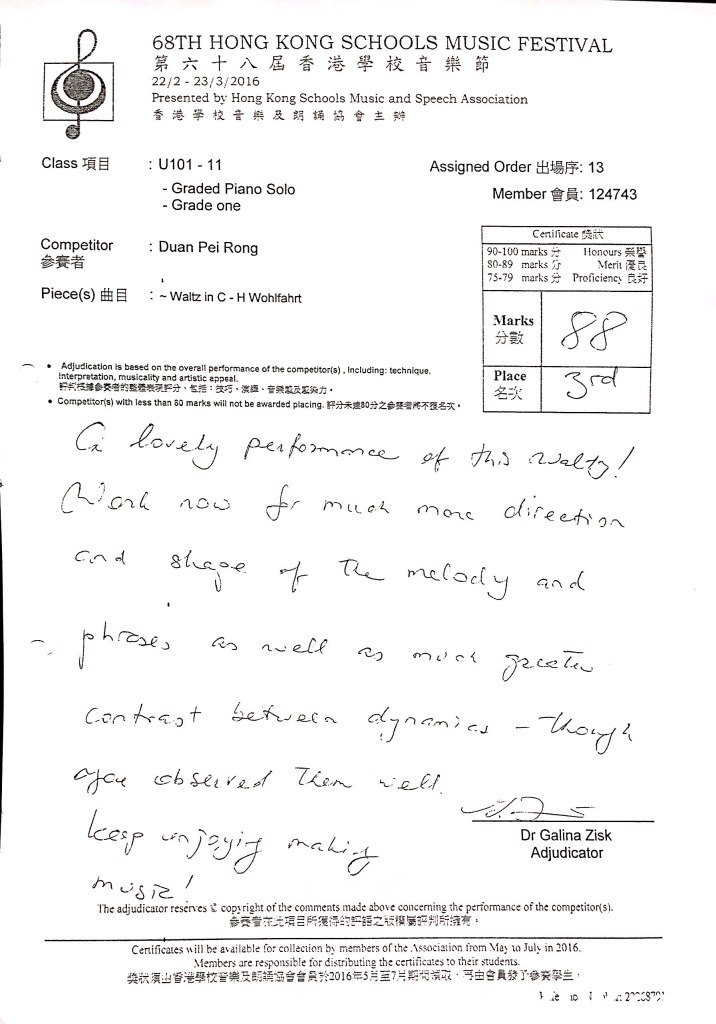 68TH HONG KONG SCHOOLS MUSIC FESTIVAL
第六十八屆香港學校音樂節
22/2 - 23/3/2016
Presented by Hong Kong Schools Music and Speech Association
香港學校音樂及朗誦協會主辦
Class 項目 : U101 - 11
- Graded Piano Solo
- Grade one
Assigned Order 出場序: 13
Member 會員: 124743
Competitor : Duan Pei Rong
參賽者
Piece(s) 曲目 : ~ Waltz in C - H Wohlfahrt
Certificate 獎狀
90-100 marks 分 Honours 榮譽
80-89 marks 分 Merit 優良
75-79 marks 分 Proficiency 良好
Marks 88
分數
Place 3rd
名次
• Adjudication is based on the overall performance of the competitor(s) , Including: technique,
Interpretation, musicality and artistic appeal.
評判根據參賽者的整體表現評分，包括：技巧、演繹、音樂感及感染力。
• Competitor(s) with less than 80 marks will not be awarded placing. 評分未達80分之參賽者將不獲名次。
A lovely performance of this waltz!
Work now for much more direction
and shape of the melody and
phrases as well as much greater
contrast between dynamics – though
you observed them well.
Keep enjoying making
music!
Dr Galina Zisk
Adjudicator
The adjudicator reserves © copyright of the comments made above concerning the performance of the competitor(s).
參賽者在此項目所獲得的評語之版權屬評判所擁有。
Certificates will be available for collection by members of the Association from May to July in 2016.
Members are responsible for distributing the certificates to their students.
獎狀須由香港學校音樂及朗誦協會會員於2016年5月至7月期間領取，再由會員發予參賽學生。